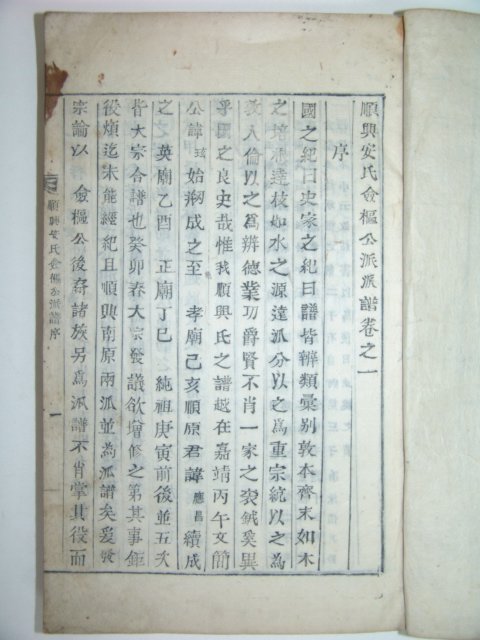 順興安氏僉樞公派派譜卷之一
序
國之紀曰史家之紀曰譜皆辨類彙別敦本齊末如木
之培馮達枝如水之源遠派分以之爲重宗統以之爲
敎人倫以之爲辨德業功爵賢不肖一家之袞鉞奚異
乎國之良史哉惟我順興氏之譜越在嘉靖丙午文簡
公諱玹始刱成之至孝廟己亥順原君諱應昌續成
之英廟乙酉正廟丁巳純祖庚寅前後並五次
皆大宗合譜也癸卯春大宗發議欲增修之第其事鉅
役煩迄未能經紀且順興南原兩派並爲派譜矣爰發
宗論以僉樞公後裔諸族另爲派譜不肖掌其役而
順興安氏僉樞公派譜序
一